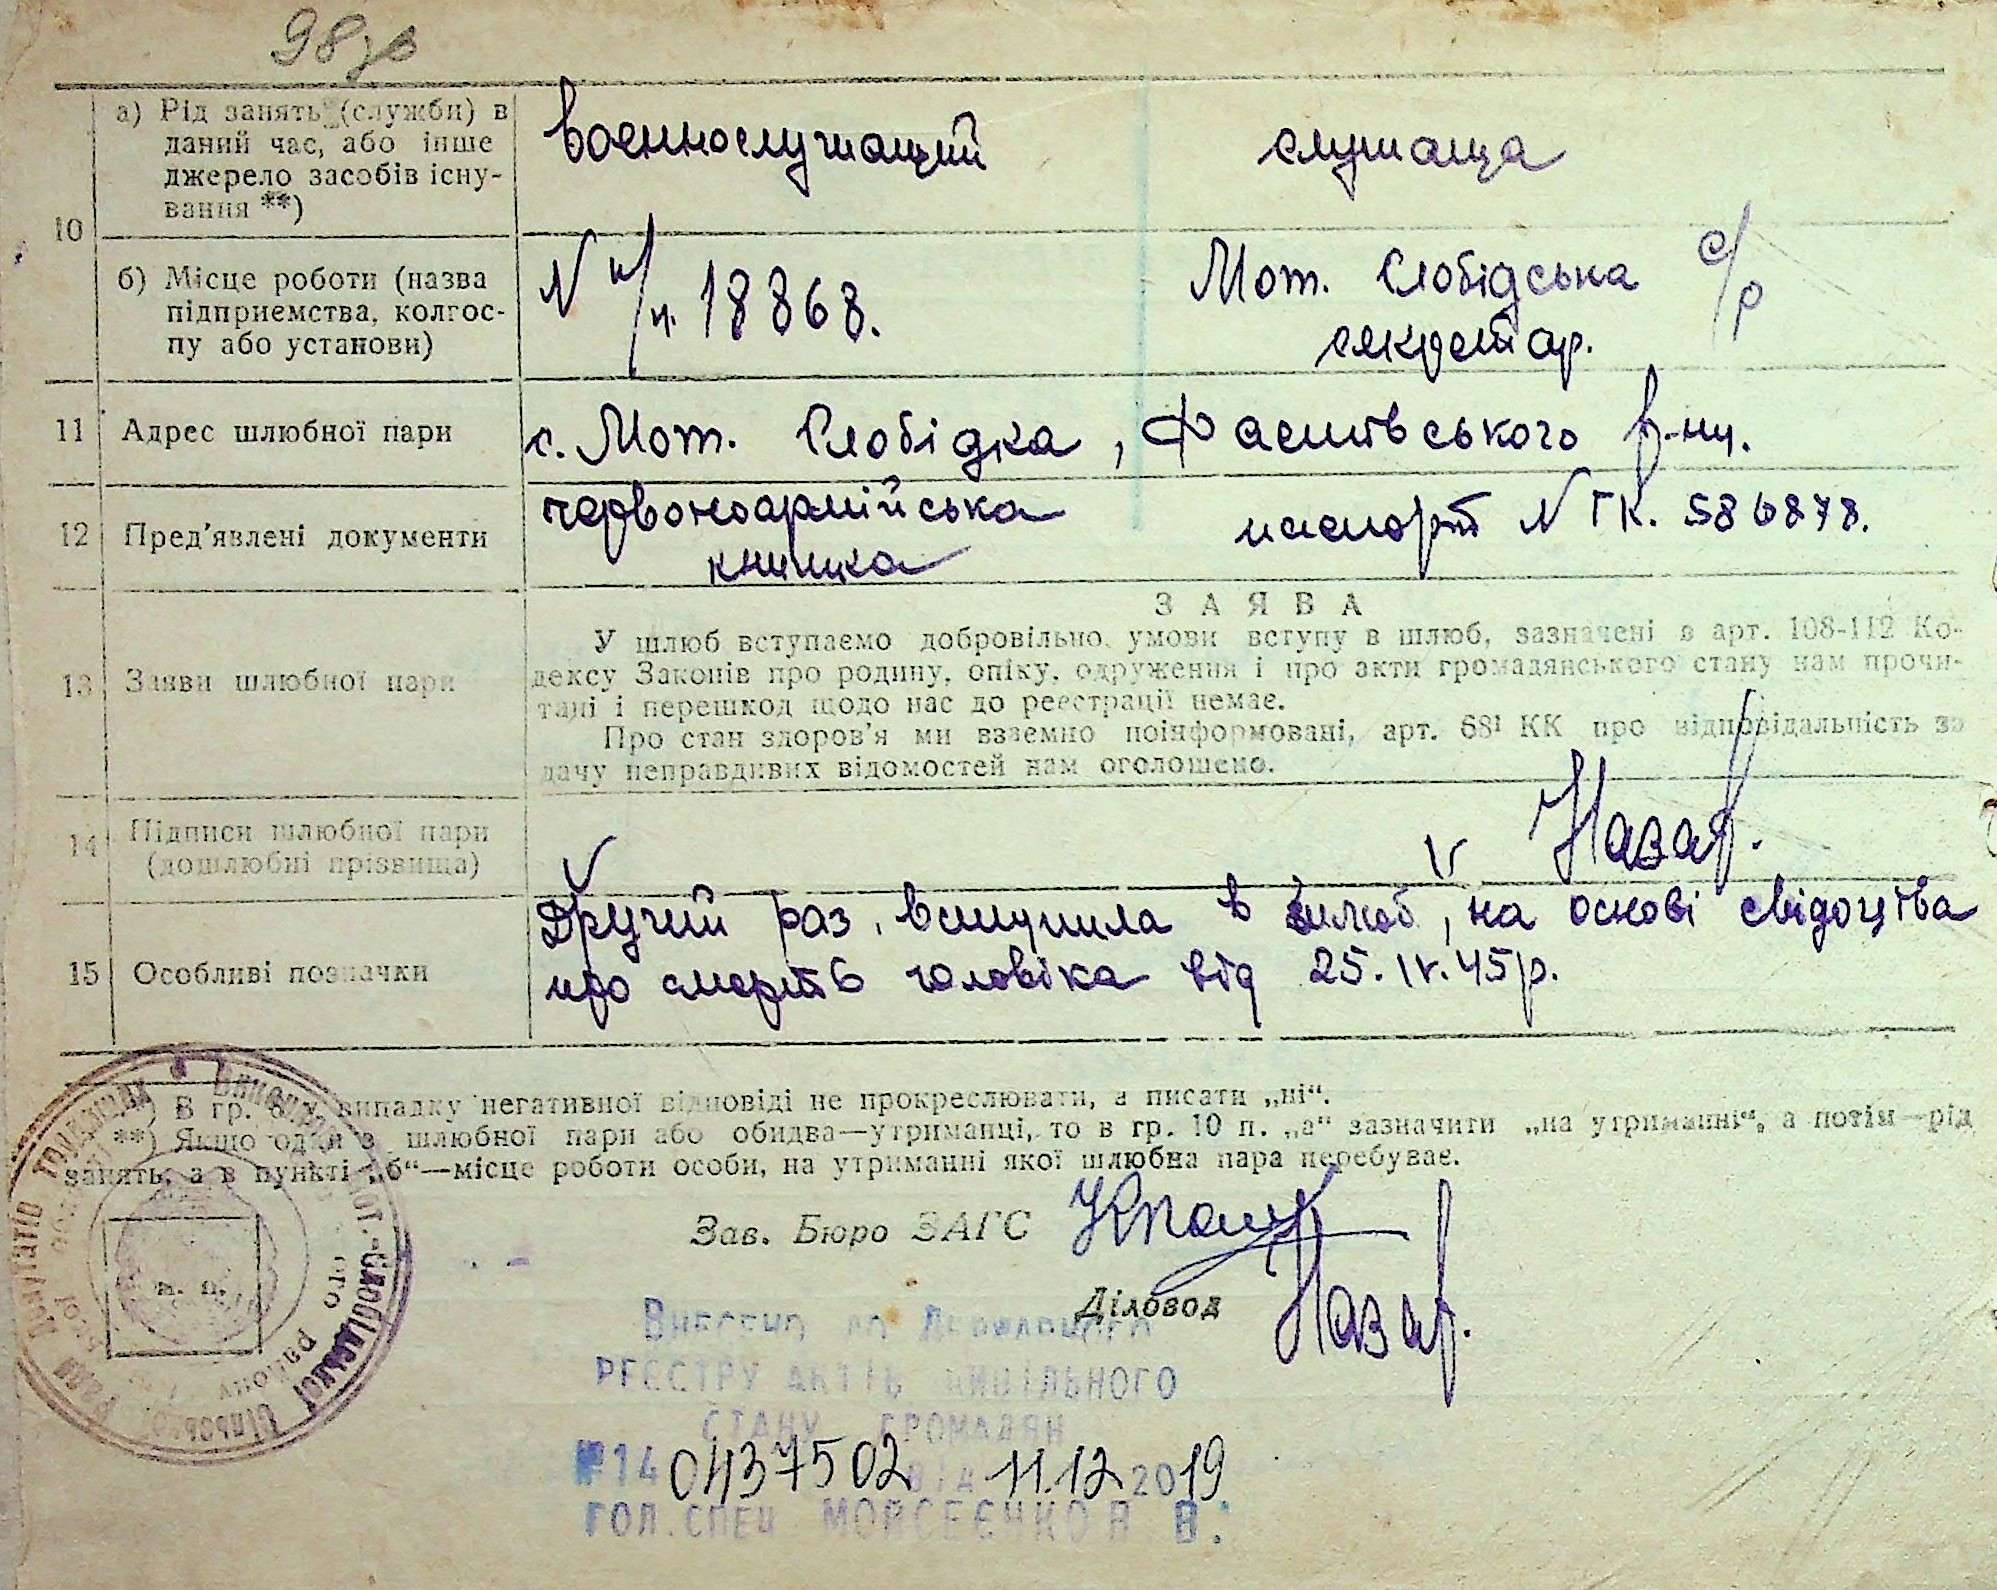 98зв
10
а) Рід занять (служби) в
даний час, або інше
джерело засобів існу-
вання **)
военнослужащий
служаща
б) Місце роботи (назва
підприємства, колгос-
пу або установи)
N п/ч. 18868.
Мот. Слобідська с/р
секретар.
11 Адрес шлюбної пари
с. Мот. Слобідка, Фастівського р-ну.
12 Пред'явлені документи
червоноармійська
книжка
паспорт N ГК. 586878.
13 Заяви шлюбної пари
ЗАЯВА
У шлюб вступаємо добровільно, умови вступу в шлюб, зазначені в арт. 108-112 Ко-
дексу Законів про родину, опіку, одруження і про акти громадянського стану нам прочи-
тані і перешкод щодо нас до реєстрації немає.
Про стан здоров'я ми взаємно поінформовані, арт. 68¹ КК про відповідальність за
дачу неправдивих відомостей нам оголошено.
14 Підписи шлюбної пари
(дошлюбні прізвища)
V
V Назар.
15 Особливі позначки
Другий раз, вступила в шлюб, на основі свідоцтва
про смерть чоловіка від 25.IV.45р.
*) В гр. 8 у випадку негативної відповіді не прокреслювати, а писати „ні“.
**) Якщо один з шлюбної пари або обидва—утриманці, то в гр. 10 п. „а“ зазначити „на утриманні“, а потім—рід
занять, а в пункті „б“—місце роботи особи, на утриманні якої шлюбна пара перебуває.
Зав. Бюро ЗАГС
Діловод Назар.
М. П.
Внесено до Державного
РЕЄСТРУ АКТІВ ЦИВІЛЬНОГО
СТАНУ ГРОМАДЯН
№14 0437502 від 11.12 2019
ГОЛ. СПЕЦ МОЙСЕЄНКО В.